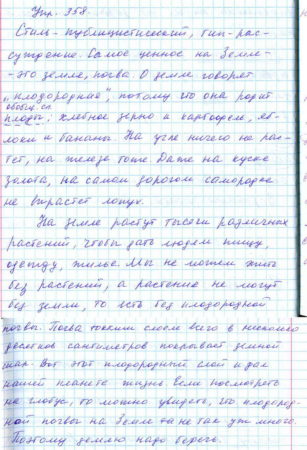 Упр. 358.
Стиль - публицистический, тип - рас-
суждение. Самое ценное на Земле-
- это земле, почва. О земле говорят
"плодородние", потому что она родит
обобщ. сл.
плоды: хлебное зерно и картофель, яб-
локи и бананы. На угле ничего не рас-
тёт, на железе тоже. Даже на куске
золота, на самом дорогом самородке
не вырастет лопух.
На земле растут тысячи различных
растений, чтобы дать людям пищу,
одежду, жильё. Мы не можем жить
без растений, а растение не могут
без земли, то есть без плодородной
почвы. Почва тонким слоем всего в несколько
десятков сантиметров покрывает земной
шар. Вот этот плодородный слой и дал
нашей планете жизнь. Если посмотреть
на глобус, то можно увидеть, что плодород-
ной почвы на Земле не так уж много.
Поэтому землю надо беречь.